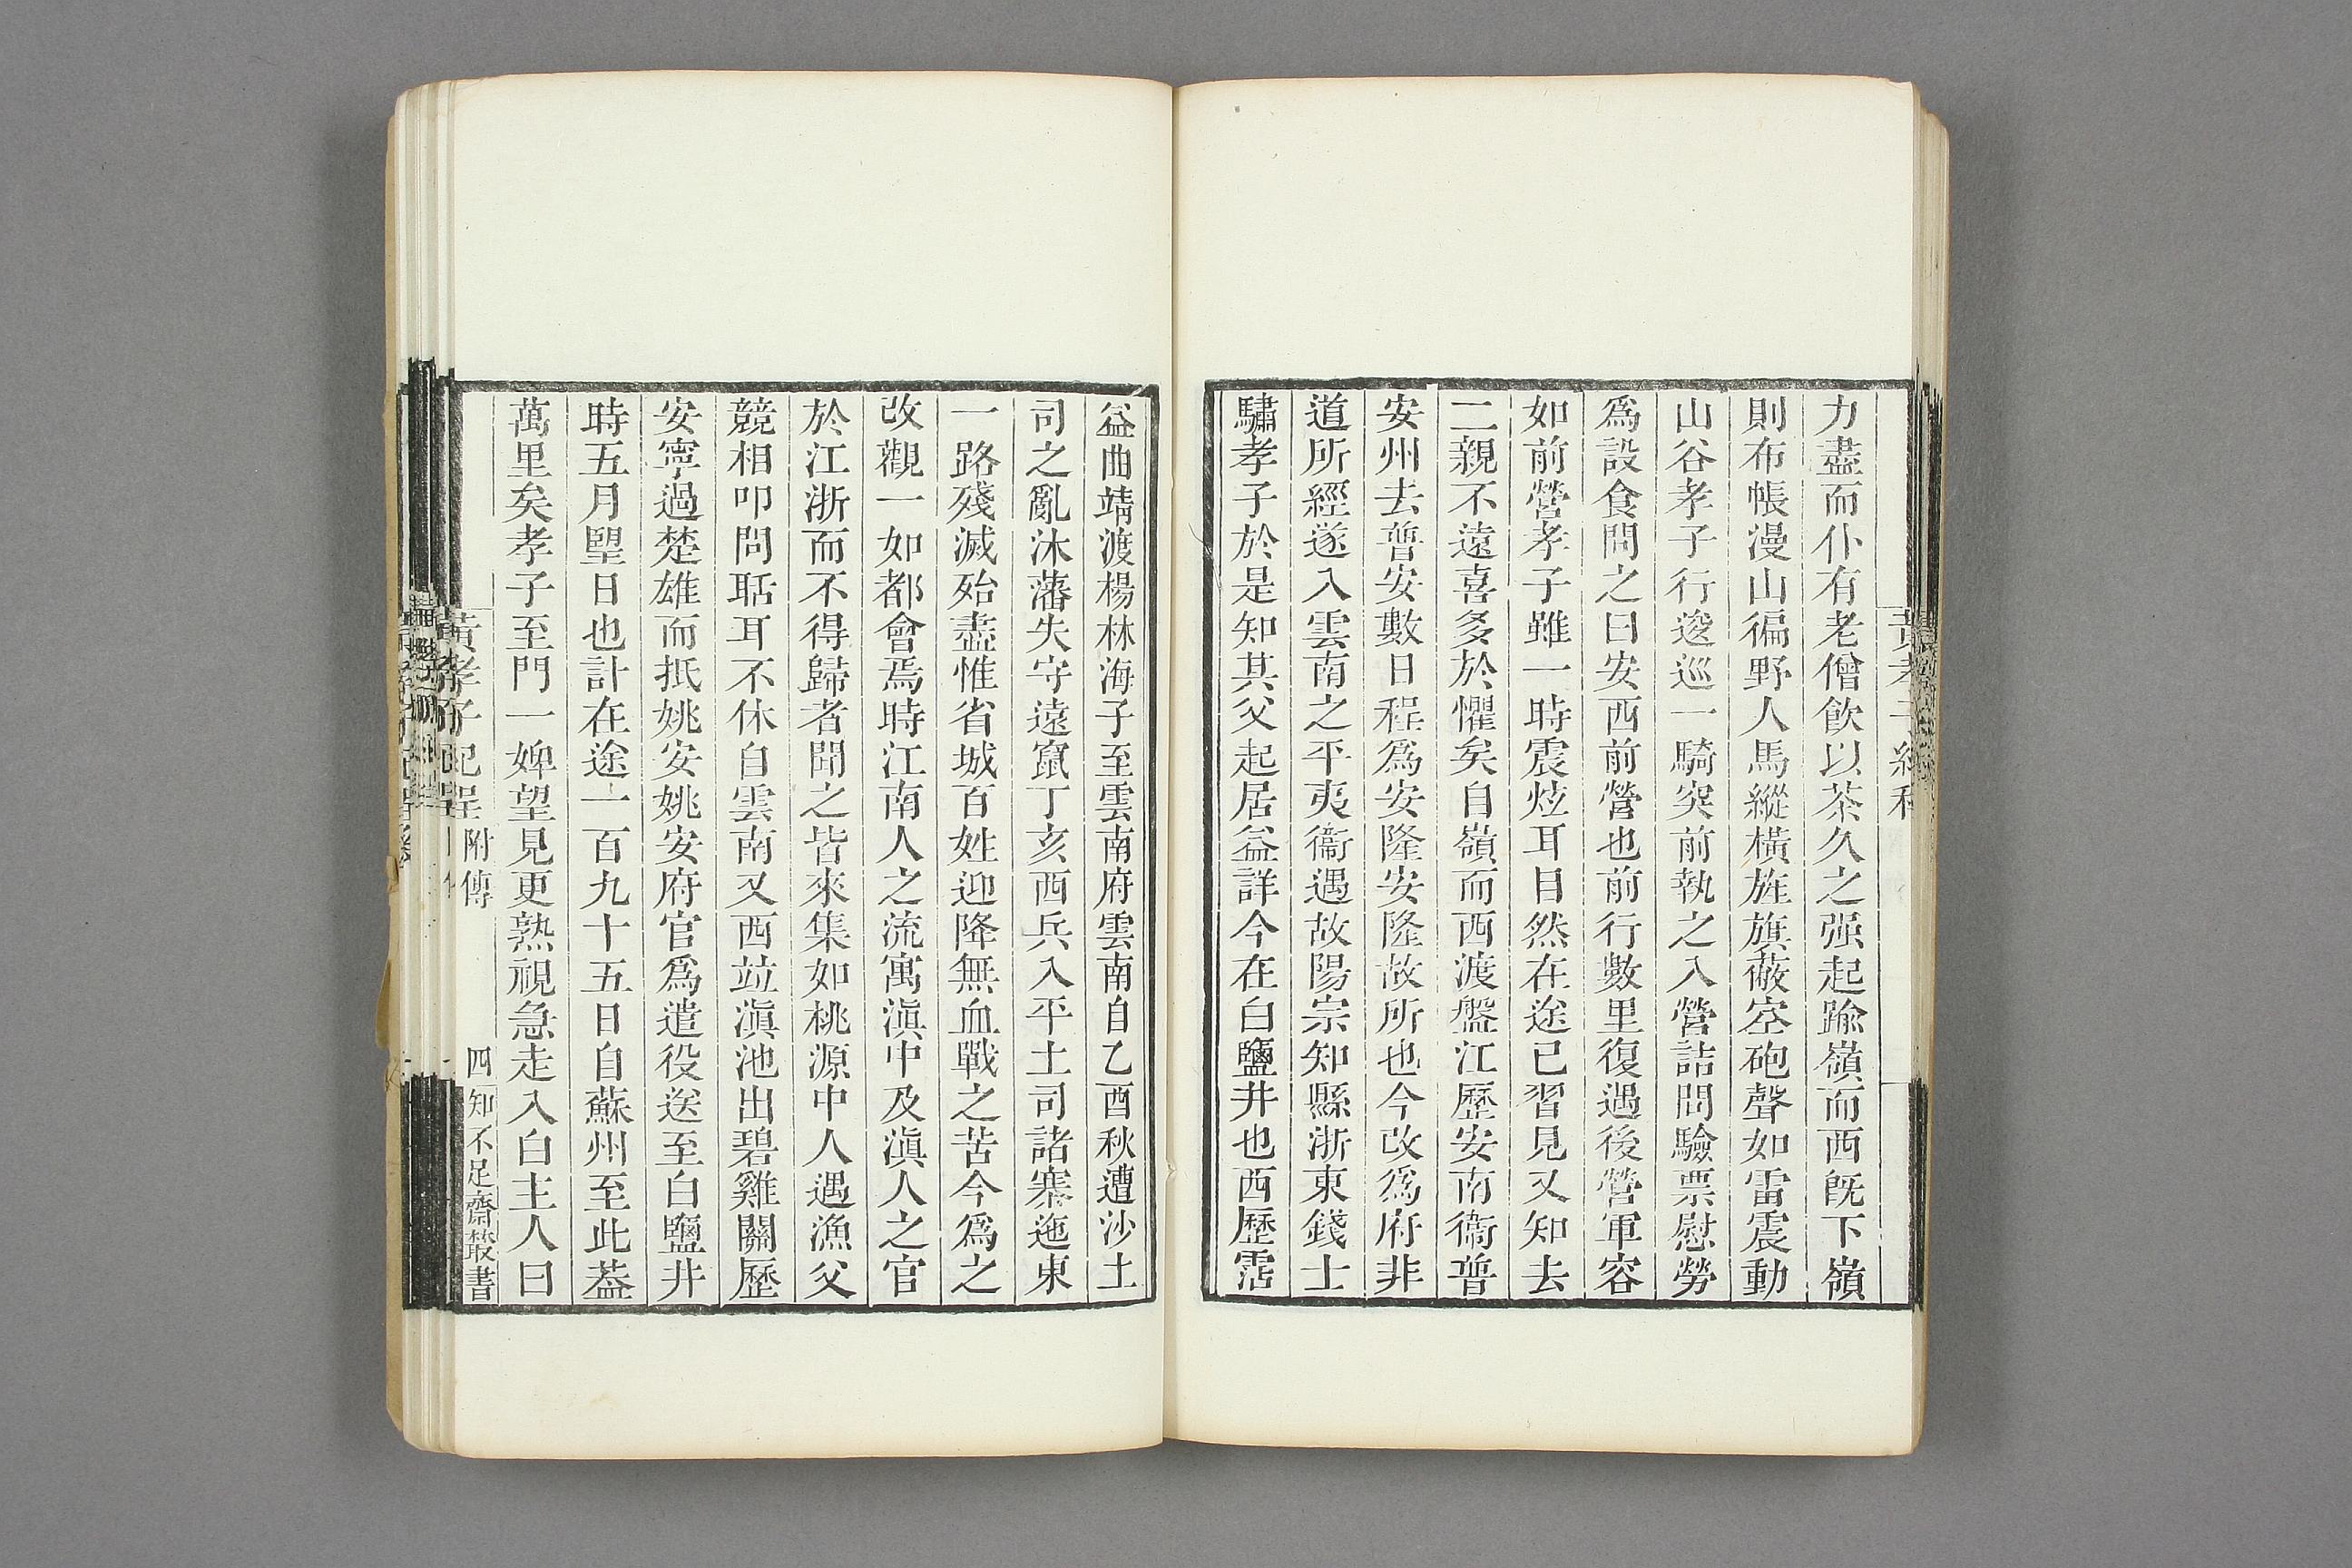 力盡而仆有老僧飮以茶久之强起踰嶺而西旣下嶺
則布帳漫山徧野人馬縱橫旌旗蔽空砲聲如雷震動
山谷孝子行逡巡一騎突前執之入營詰問驗票慰勞
爲設食問之曰安西前營也前行數里復遇後營軍容
如前營孝子雖一時震炫耳目然在途已習見又知去
二親不遠喜多於懼矣自嶺而西渡盤江歷安南衞普
安州去普安數日程爲安隆安隆故所也今改爲府非
道所經遂入雲南之平夷衞遇故陽宗知縣浙東錢士
驌孝子於是知其父起居益詳今在白鹽井也西歷霑
益曲靖渡楊林海子至雲南府雲南自乙酉秋遭沙土
司之亂沐藩失守遠竄丁亥西兵入平土司諸寨迤東
一路殘滅殆盡惟省城百姓迎降無血戰之苦今爲之
改觀一如都會焉時江南人之流寓滇中及滇人之官
於江浙而不得歸者聞之皆來集如桃源中人遇漁父
競相叩問聒耳不休自雲南又西竝滇池出碧雞關歷
安寧過楚雄而抵姚安姚安府官爲遣役送至白鹽井
時五月朢日也計在途一百九十五日自蘇州至此葢
萬里矣孝子至門一婢望見更熟視急走入白主人曰
黃孝子紀程 附傳 四 知不足齋叢書